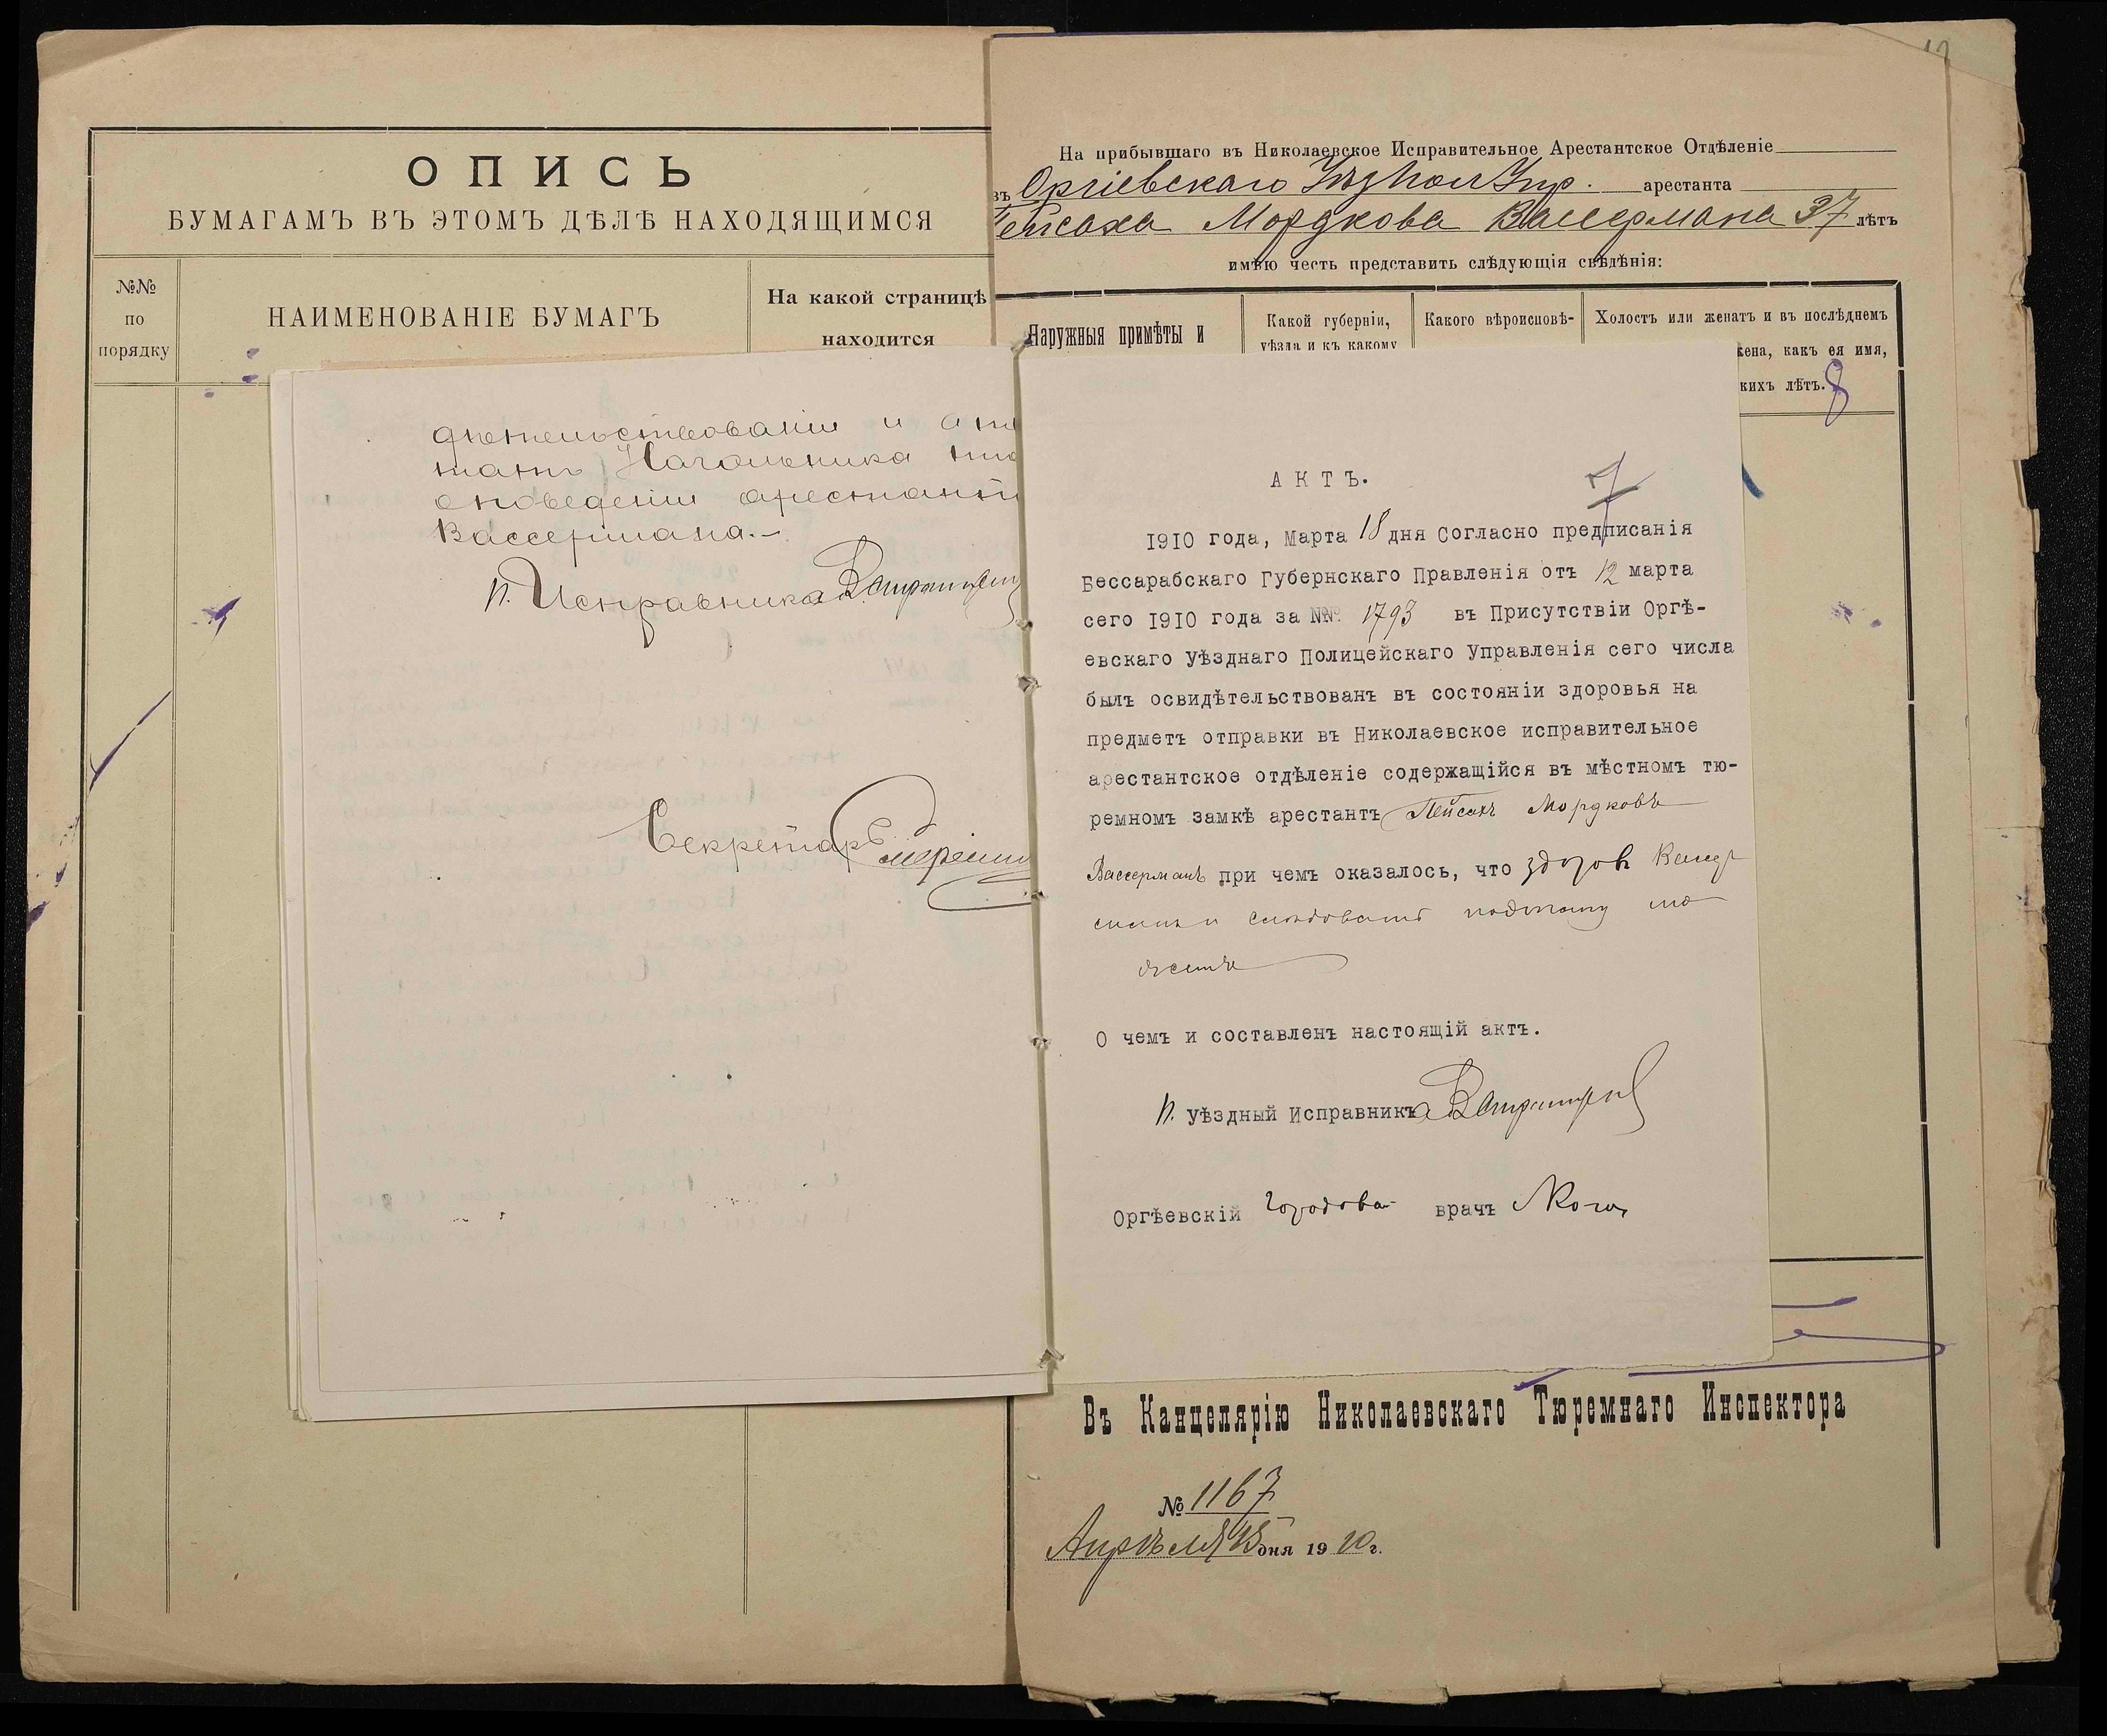 ОПИСЬ
БУМАГАМЪ ВЪ ЭТОМЪ ДѢЛѢ НАХОДЯЩИМСЯ
№№
по
порядку
НАИМЕНОВАНІЕ БУМАГЪ
На какой страницѣ
находится
дѣтельствованіи и
Начальника
Вассермана.—
И. Исправника
Секретарь
На прибывшаго въ Николаевское Исправительное Арестантское Отдѣленіе
въ Оргіевскаго Уѣзднаго Упр. арестанта
Пейсаха Мордкова Вассермана 37 лѣтъ
имѣю честь представить слѣдующія свѣдѣнія:
Наружныя примѣты и
Какой губерніи,
уѣзда и къ какому
Какого вѣроисповѣ-
Холостъ или женатъ и въ послѣднемъ
жена, какъ ея имя,
кихъ лѣтъ.
8
7
АКТЪ.
1910 года, Марта 18 дня Согласно предписанія
Бессарабскаго Губернскаго Правленія отъ 12 марта
сего 1910 года за №№ 1793 въ Присутствіи Оргѣ-
евскаго Уѣзднаго Полицейскаго Управленія сего числа
былъ освидѣтельствованъ въ состояніи здоровья на
предметъ отправки въ Николаевское исправительное
арестантское отдѣленіе содержащійся въ мѣстномъ тю-
ремномъ замкѣ арестантъ Пейсахъ Мордковъ
Вассерманъ при чемъ оказалось, что здоровъ
слѣдовать по этапу мо
жетъ
О чемъ и составленъ настоящій актъ.
И. Уѣздный Исправникъ
Оргѣевскій Городовой врачъ
Въ Канцелярію Николаевскаго Тюремнаго Инспектора
№ 1167
Апрѣля 15 дня 1910 г.